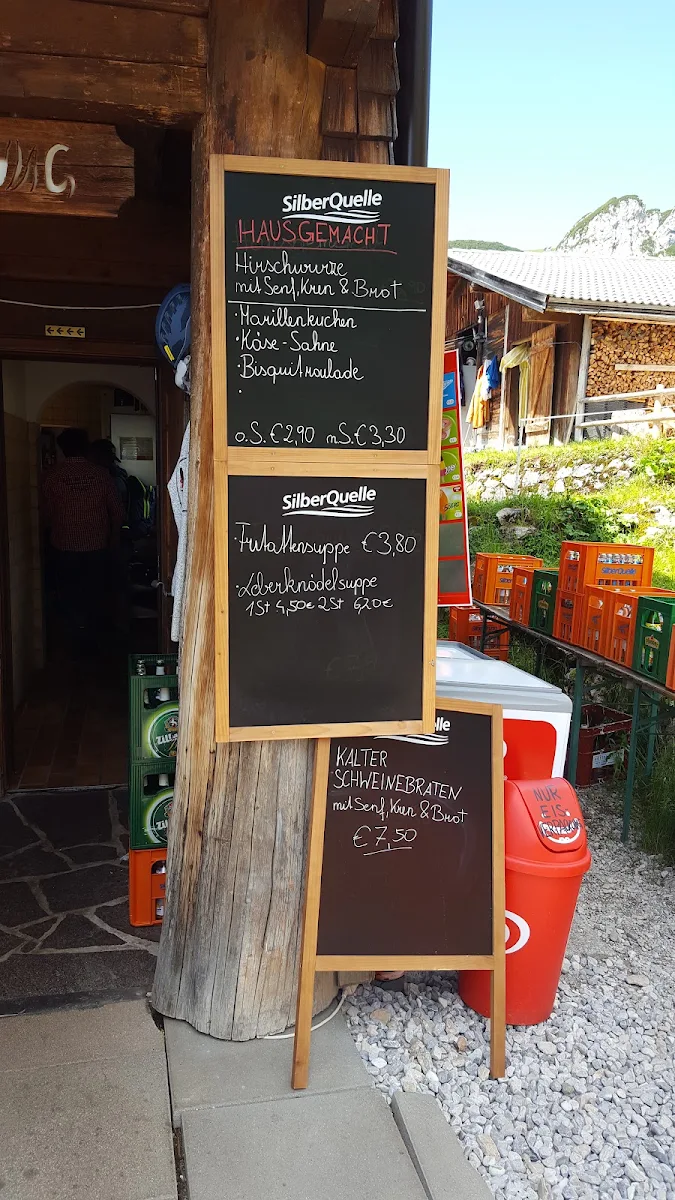 SilberQuelle
HAUSGEMACHT
Hirschwurze
mit Senf, Kren & Brot
·Marillenkuchen
·Käse-Sahne
·Bisquitroulade
·
o.S. €2,90 mS. €3,30
SilberQuelle
·Fritattensuppe €3,80
·Leberknödelsuppe
1St 4,50€ 2St 6,20€
KALTER
SCHWEINEBRATEN
mit Senf, Kren & Brot
€7,50
NUR
EIS
SilberQuelle